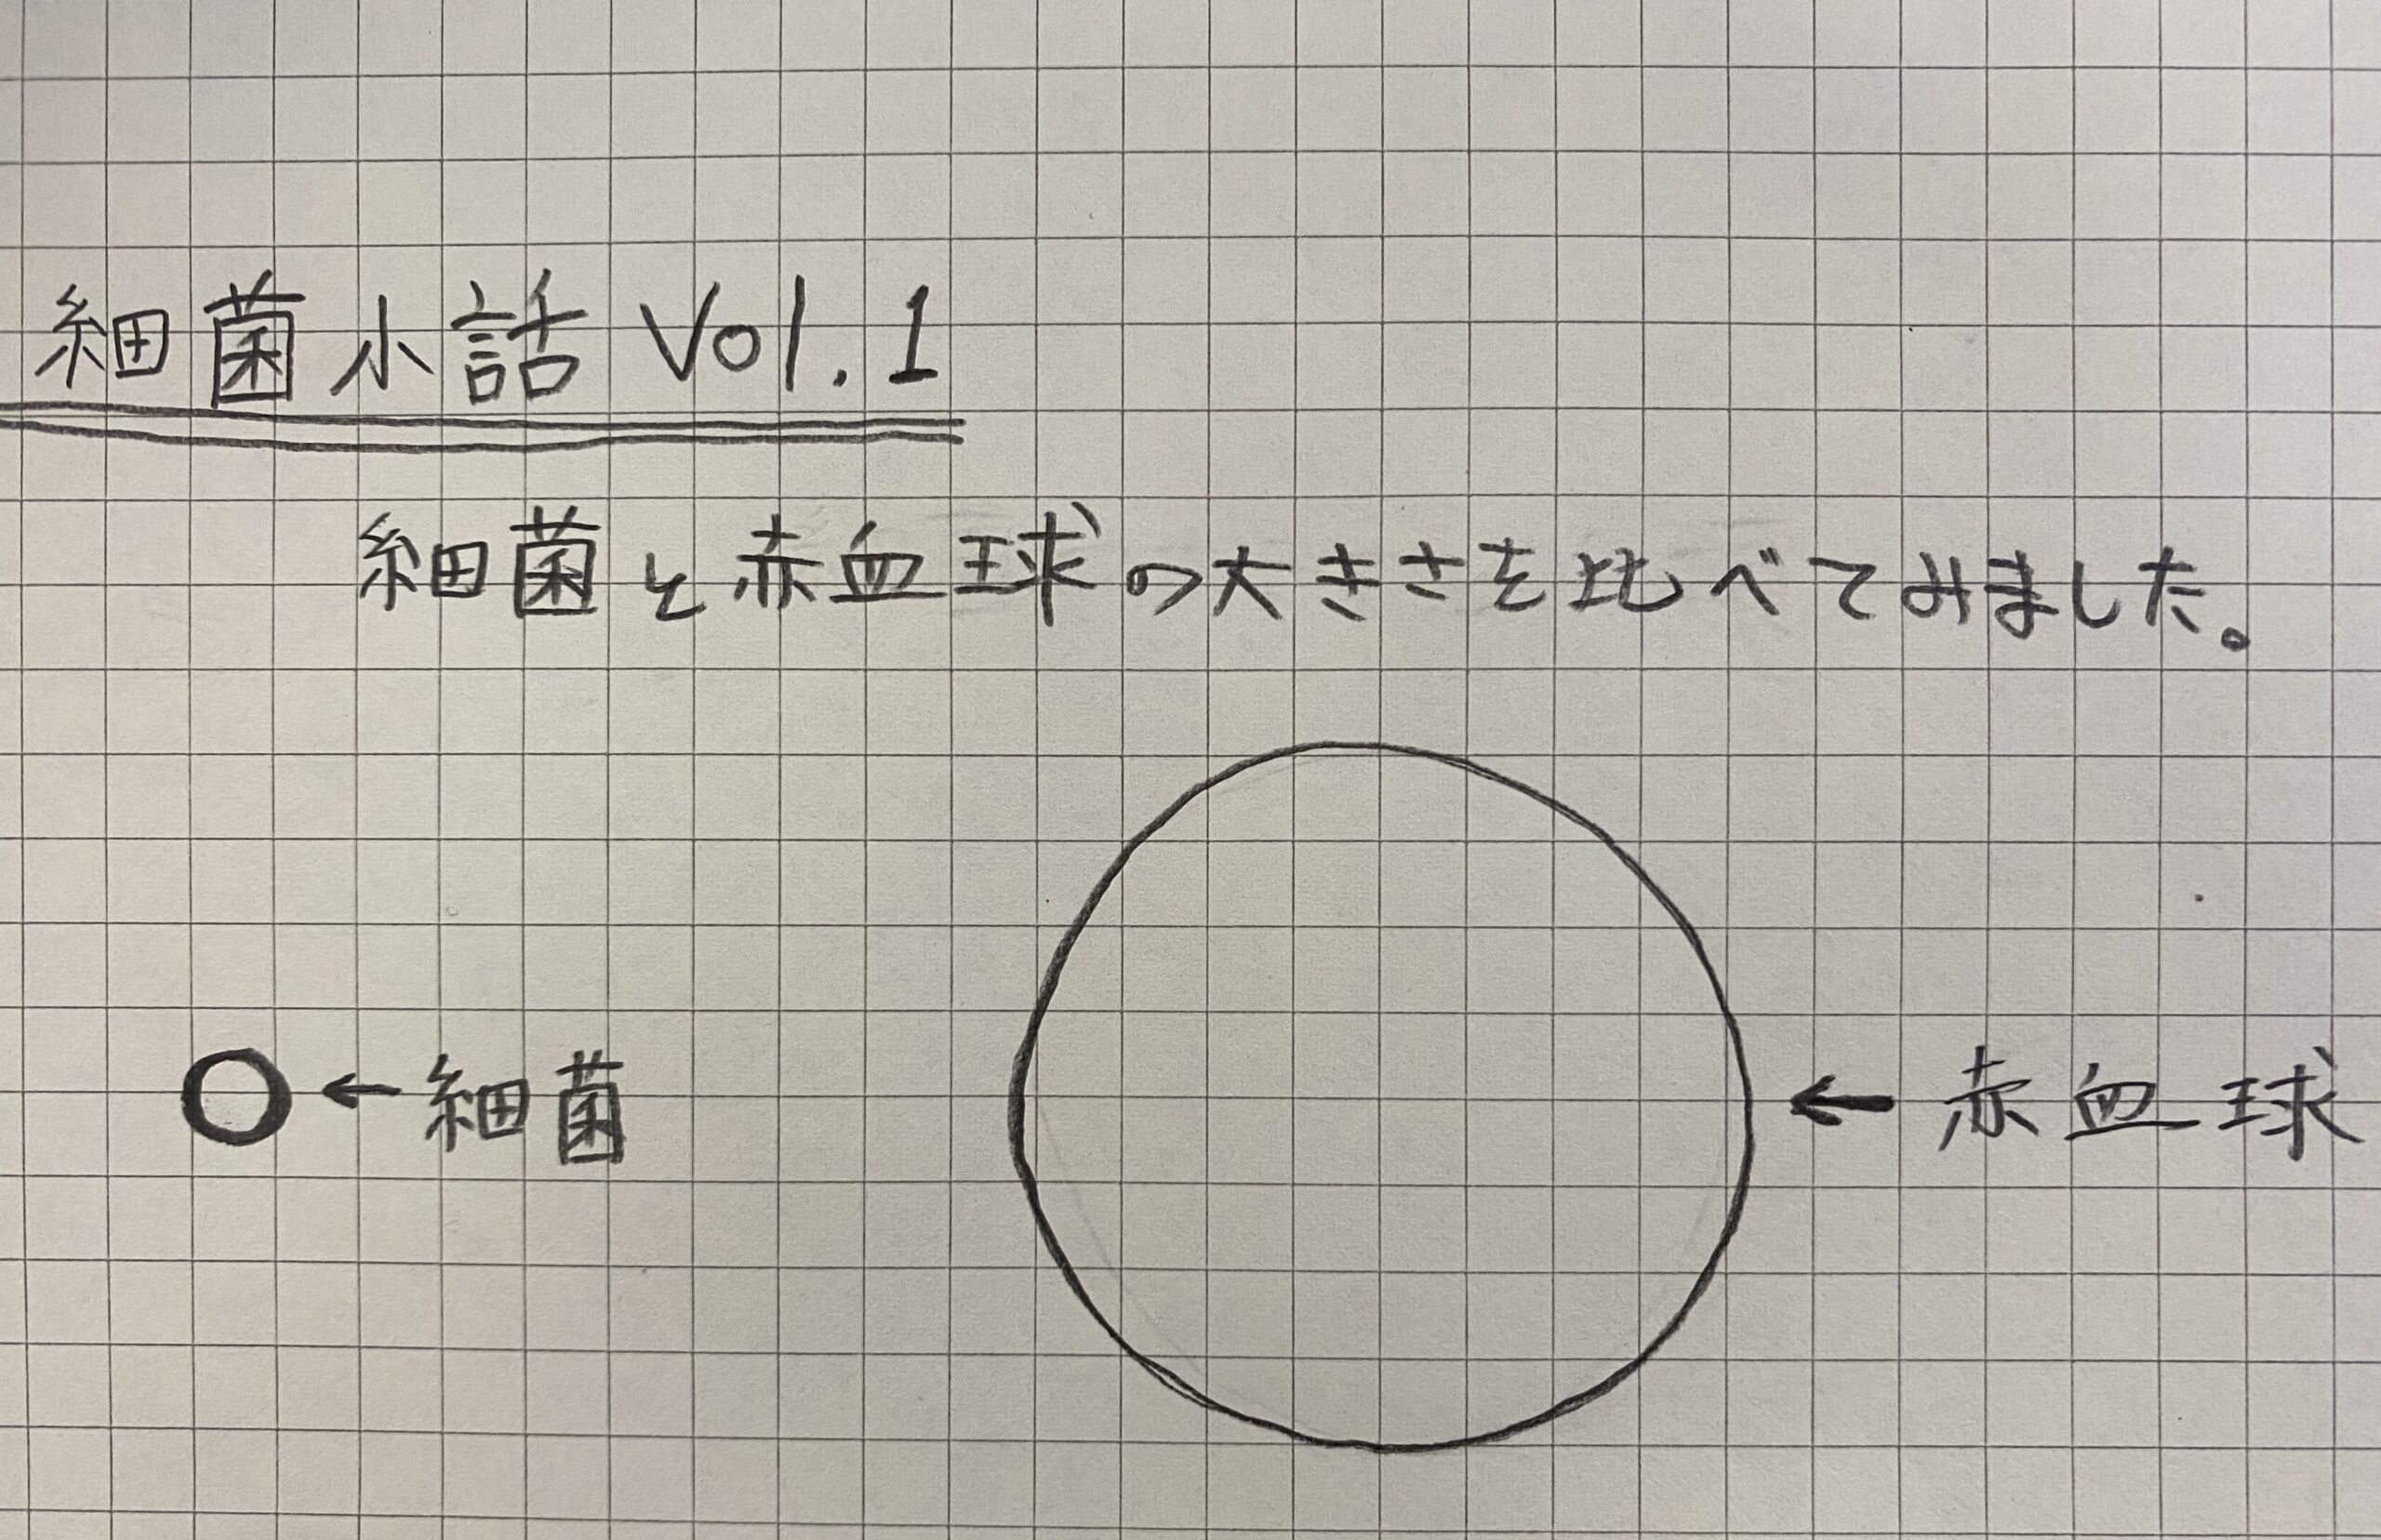 細菌小話 Vol.1
細菌と赤血球の大きさを比べてみました。
←細菌
←赤血球